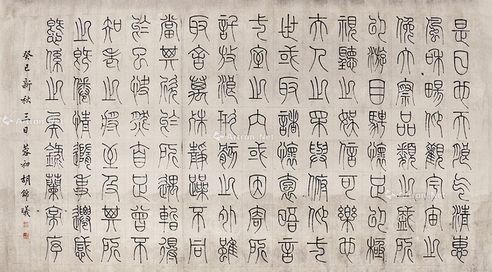 是日也天朗氣清惠
風和暢仰觀宇宙之
大俯察品類之盛所
以游目騁懷足以極
視聽之娛信可樂也
夫人之相與俯仰一
世或取諸懷抱晤言
一室之內或因寄所
託放浪形骸之外雖
取舍萬殊靜躁不同
當其欣於所遇暫得
於己快然自足曾不
知老之將至及其所
之既倦情隨事遷感
慨係之矣錄蘭亭序
癸巳新秋二日胡